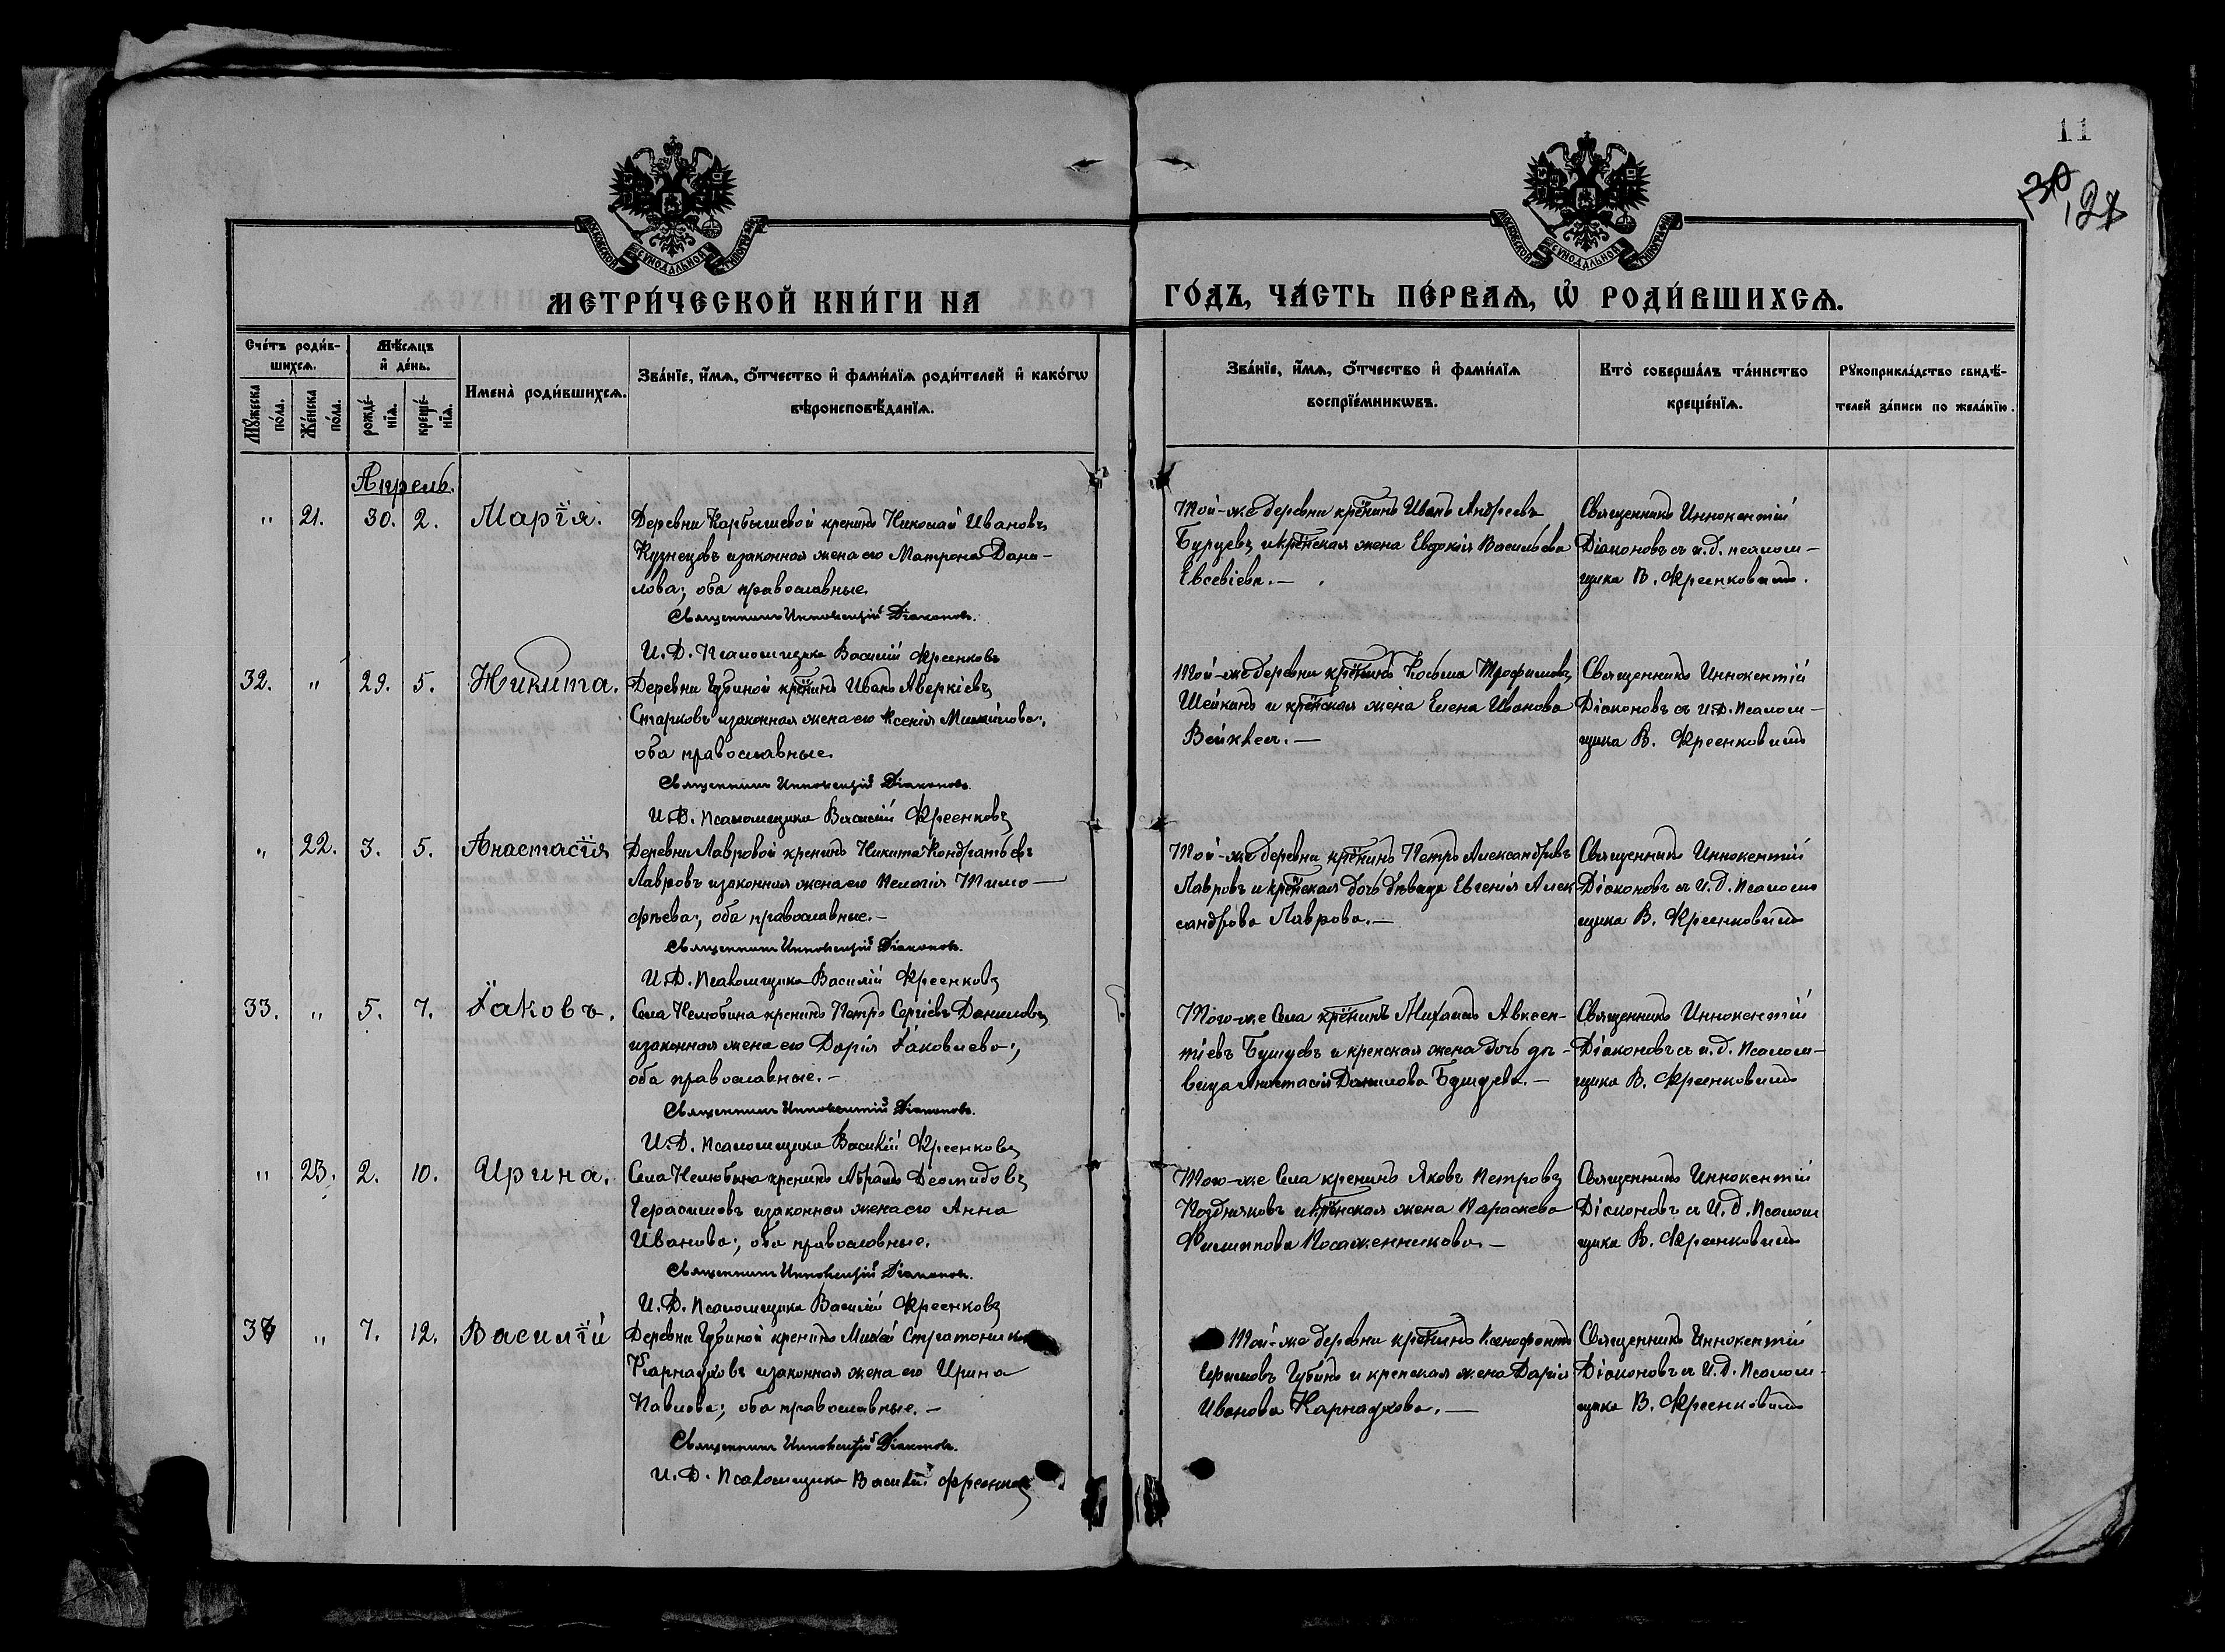 11
30
МОСКОВСКОЙ СѴНОДАЛЬНОЙ ТИПОГРАФІИ
МОСКОВСКОЙ СѴНОДАЛЬНОЙ ТИПОГРАФІИ
МЕТРИ́ЧЕСКОЙ КНИ́ГИ НА
ГО́ДЪ, ЧА́СТЬ ПЕ́РВАѦ, Ѡ РОДИ́ВШИХСѦ.
Сче́тъ роди́в-
шихсѧ.
Мѣ́сѧцъ
и҆ де́нь.
Мꙋ́жеска по́ла.
Же́нска по́ла.
рожде́-нїѧ.
креще́-нїѧ.
Имена̀ роди́вшихсѧ.
Зва́нїе, и҆́мѧ, ѻ҆́тчество и҆ фами́лїѧ роди́телей и҆ како́гѡ
вѣроисповѣ́данїѧ.
Зва́нїе, и҆́мѧ, ѻ҆́тчество и҆ фами́лїѧ
воспрїе́мникѡвъ.
Кто̀ соверша́лъ та́инство
креще́нїѧ.
Рꙋкоприкла́дство свидѣ́-
телей за́писи по жела́нїю.
Апрель.
" 21. 30. 2. Марія.
Деревни Карбышевой кр̃нинъ Николай Ивановъ
Кузнецовъ и законная жена его Матрона Дани-
лова; оба православные.
Священникъ Иннокентій Діаконовъ.
И.Д. Псаломщика Василій Фрсенковъ
Той-же деревни кр̃нинъ Иванъ Андреевъ
и кр̃нская жена Евдокія Васильева
Евсевіева.—
Священникъ Иннокентій
Діаконовъ съ и.д. псалом-
щика В. Фрсенковымъ.
32. " 29. 5. Никита.
Деревни Губиной кр̃нинъ Иванъ Аверкіевъ
Старковъ и законная жена его Ксенія Михайлова;
оба православные.
Священникъ Иннокентій Діаконовъ.
И.Д. Псаломщика Василій Фрсенковъ
Той-же деревни кр̃нинъ Косьма Трофимовъ
Шейкинъ и кр̃нская жена Елена Иванова
Священникъ Иннокентій
Діаконовъ съ И.Д. Псалом-
щика В. Фрсенковымъ
" 22. 3. 5. Анастасія
Деревни Лавровой кр̃нинъ Никита Кондратьевъ
Лавровъ и законная жена его Пелагія Тимо-
фѣева; оба православные.-
Священникъ Иннокентій Діаконовъ.
И.Д. Псаломщика Василій Фрсенковъ
Той-же деревни кр̃нинъ Петръ Александровъ
Лавровъ и кр̃нская дочь дѣвица Евгенія Алек-
сандрова Лаврова.—
Священникъ Иннокентій
Діаконовъ съ И.Д. Псалом
щика В. Фрсенковымъ
33. " 5. 7. Іаковъ.
Села Нелюбина кр̃нинъ Петръ Сергіевъ Даниловъ
и законная жена его Дарія Іаковлева;
оба православные.-
Священникъ Иннокентій Діаконовъ.
И.Д. Псаломщика Василій Фрсенковъ
Того-же Села кр̃нинъ Михаилъ Авксен-
тіевъ Бушуевъ и кр̃нская жена дочь дѣ-
вица Анастасія Данилова Бушуева.—
Священникъ Иннокентій
Діаконовъ съ и.д. Псалом-
щика В. Фрсенковымъ
" 23. 2. 10. Ирина.
Села Нелюбина кр̃нинъ Абрамъ Деомидовъ
Герасимовъ и законная жена его Анна
Иванова; оба православные.
Священникъ Иннокентій Діаконовъ.
И.Д. Псаломщика Василій Фрсенковъ
Того-же Села кр̃нинъ Яковъ Петровъ
Поздняковъ и кр̃нская жена Параскева
Филиппова Посаженникова.—
Священникъ Иннокентій
Діаконовъ съ И.Д. Псалом
щика В. Фрсенковымъ
34 " 7. 12. Василій
Деревни Губиной кр̃нинъ Михей
Карнауховъ и законная жена его Ирина
Павлова; оба православные.-
Священникъ Иннокентій Діаконовъ.
И.Д. Псаломщика Василій Фрсенковъ
Той-же деревни кр̃нинъ Ксенофонтъ
Губинъ и кр̃нская жена Дарія
Иванова Карнаухова.—
Священникъ Иннокентій
Діаконовъ съ И.Д. Псалом-
щика В. Фрсенковымъ